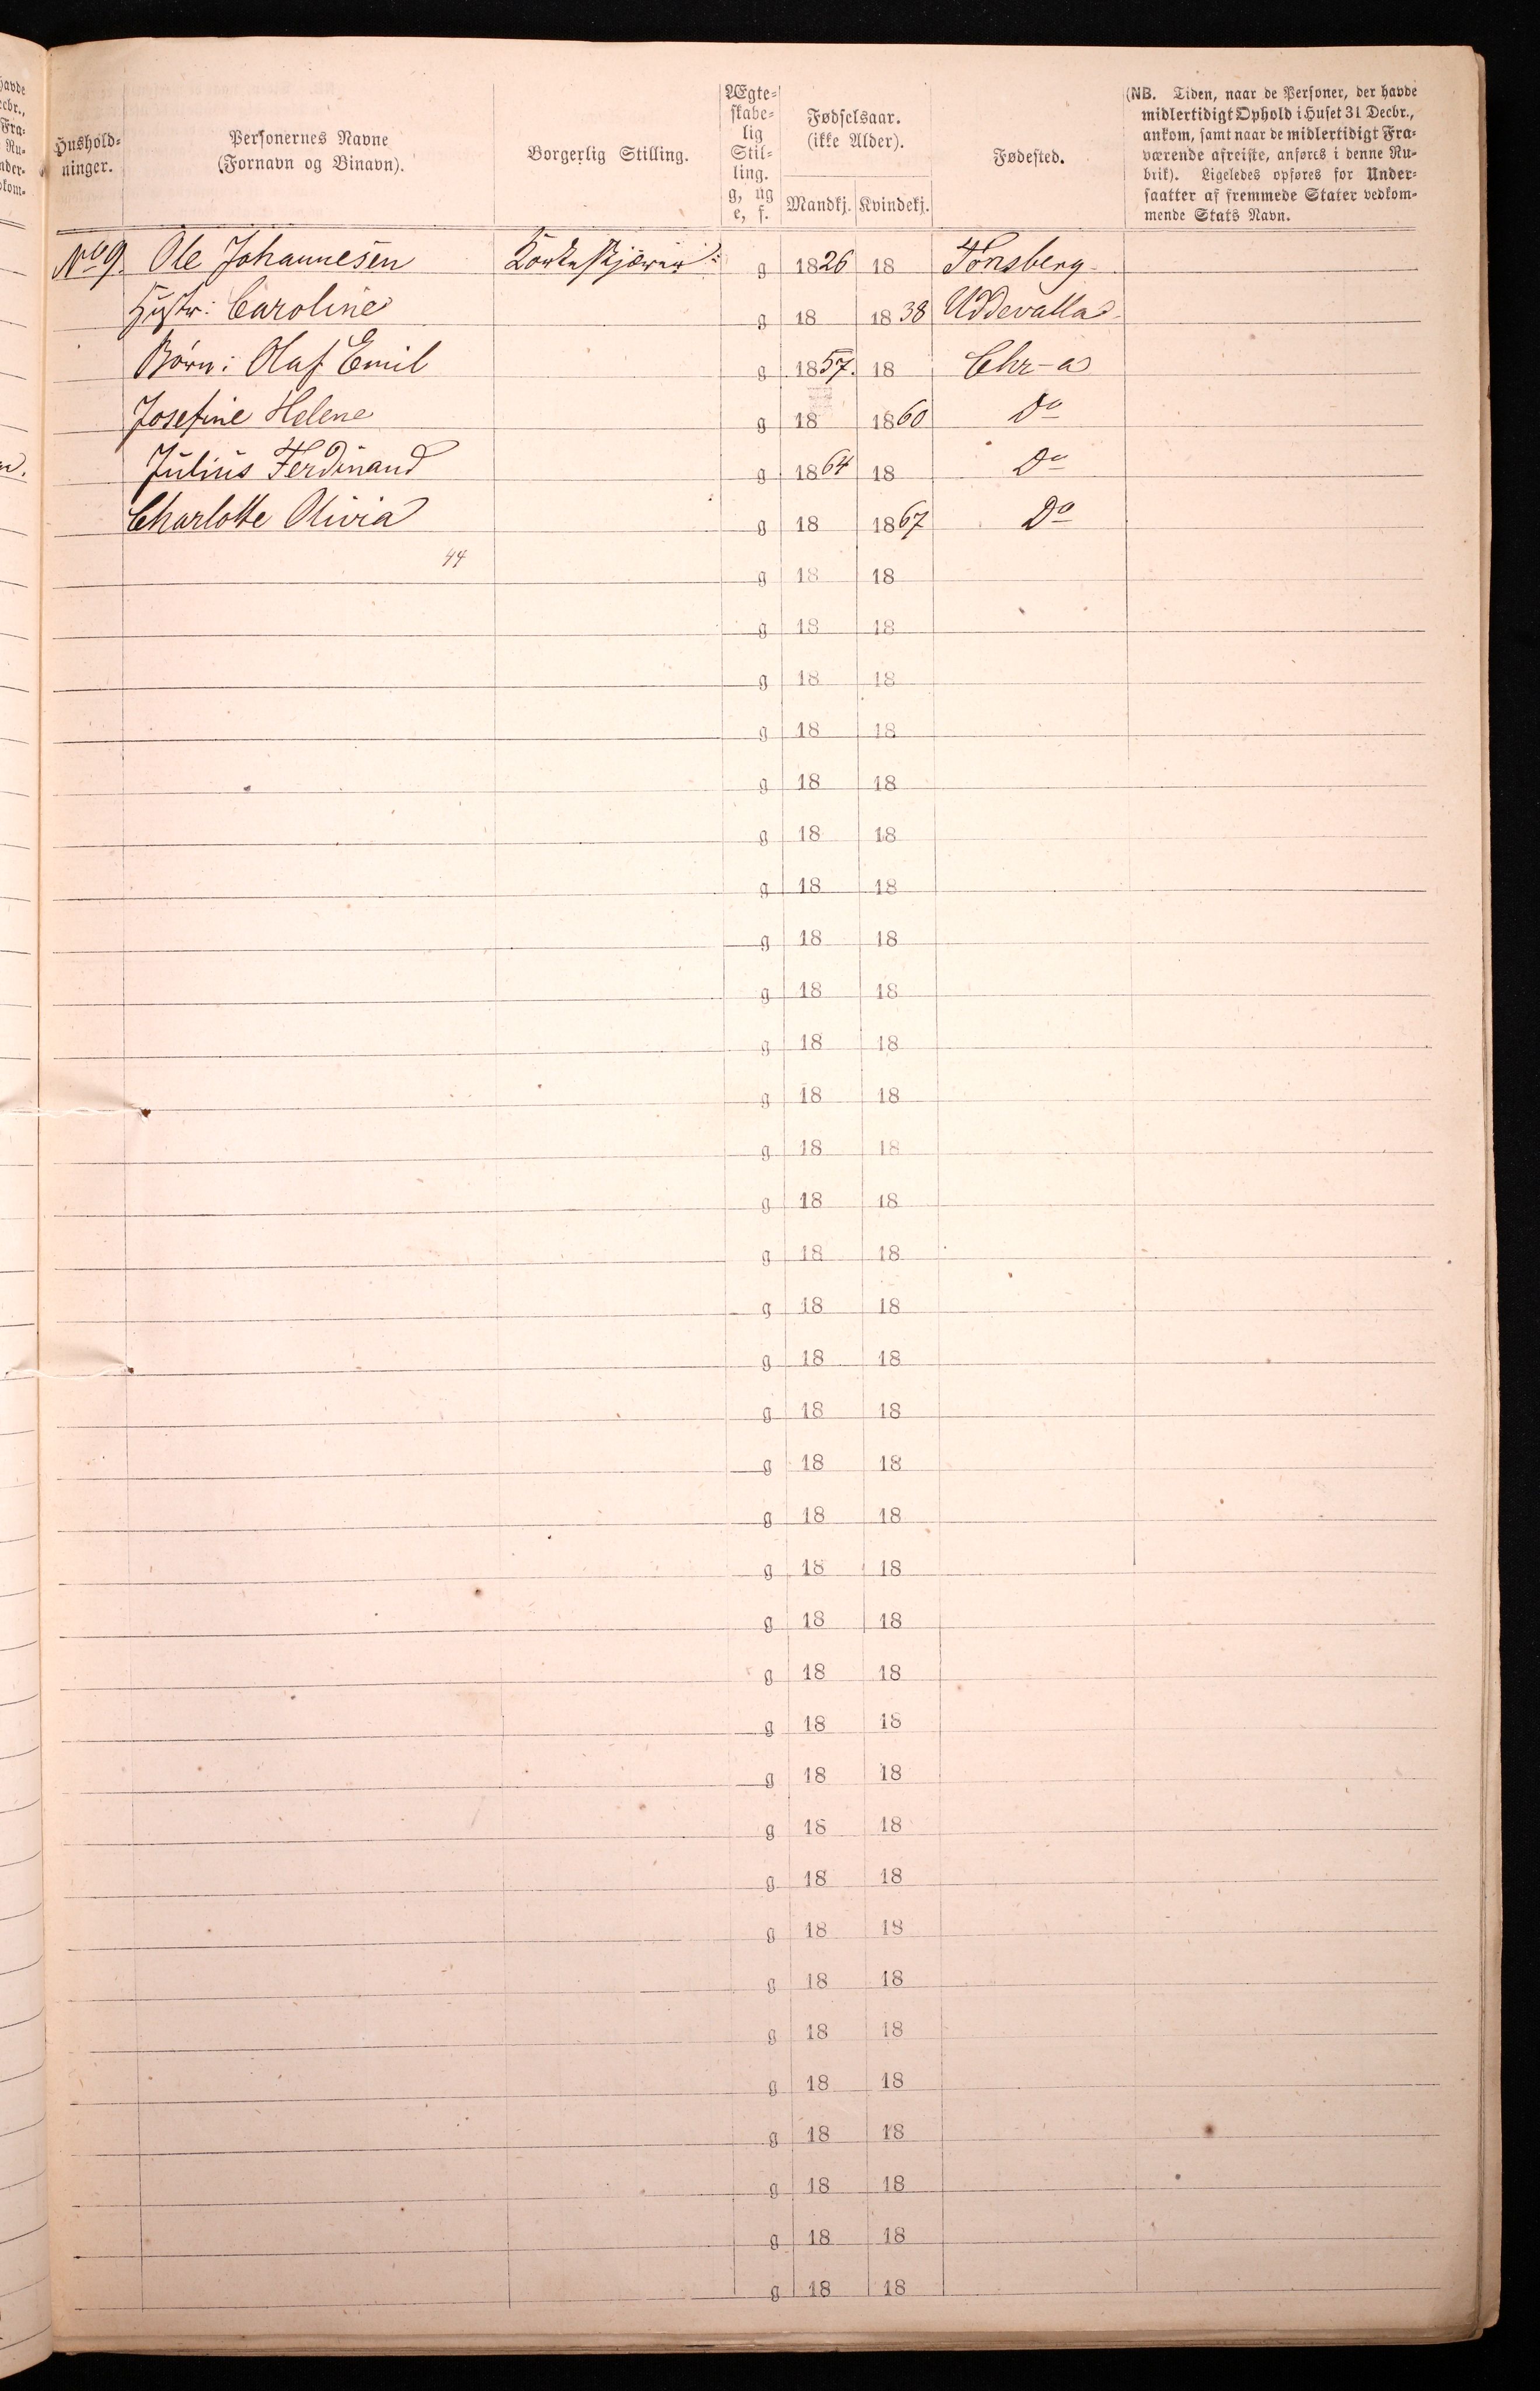 Hushold-
ninger.
Personernes Navne
(Fornavn og Binavn).
Borgerlig Stilling.
Ægte-
skabe-
lig
Stil-
ling.
g, ug
e, f.
Fødselsaar.
(ikke Alder).
Mandkj. Kvindekj.
Fødested.
(NB. Tiden, naar de Personer, der havde
midlertidigt Ophold i Huset 31 Decbr.,
ankom, samt naar de midlertidigt Fra-
værende afreiste, anføres i denne Ru-
brik). Ligeledes opføres for Under-
saatter af fremmede Stater vedkom-
mende Stats Navn.
No 9. Ole Johannesen Korkeskjærer g 1826 18 Tönsberg
Hustr: Caroline g 18 1838 Uddevalla
Børn: Olaf Emil g 1857. 18 Chr-a
Josefine Helene g 18 1860 Do
Julius Ferdinand g 1864 18 Do
Charlotte Olivia g 18 1867 Do
44
g 18 18
g 18 18
g 18 18
g 18 18
g 18 18
g 18 18
g 18 18
g 18 18
g 18 18
g 18 18
g 18 18
g 18 18
g 18 18
g 18 18
g 18 18
g 18 18
g 18 18
g 18 18
g 18 18
g 18 18
g 18 18
g 18 18
g 18 18
g 18 18
g 18 18
g 18 18
g 18 18
g 18 18
g 18 18
g 18 18
g 18 18
g 18 18
g 18 18
g 18 18